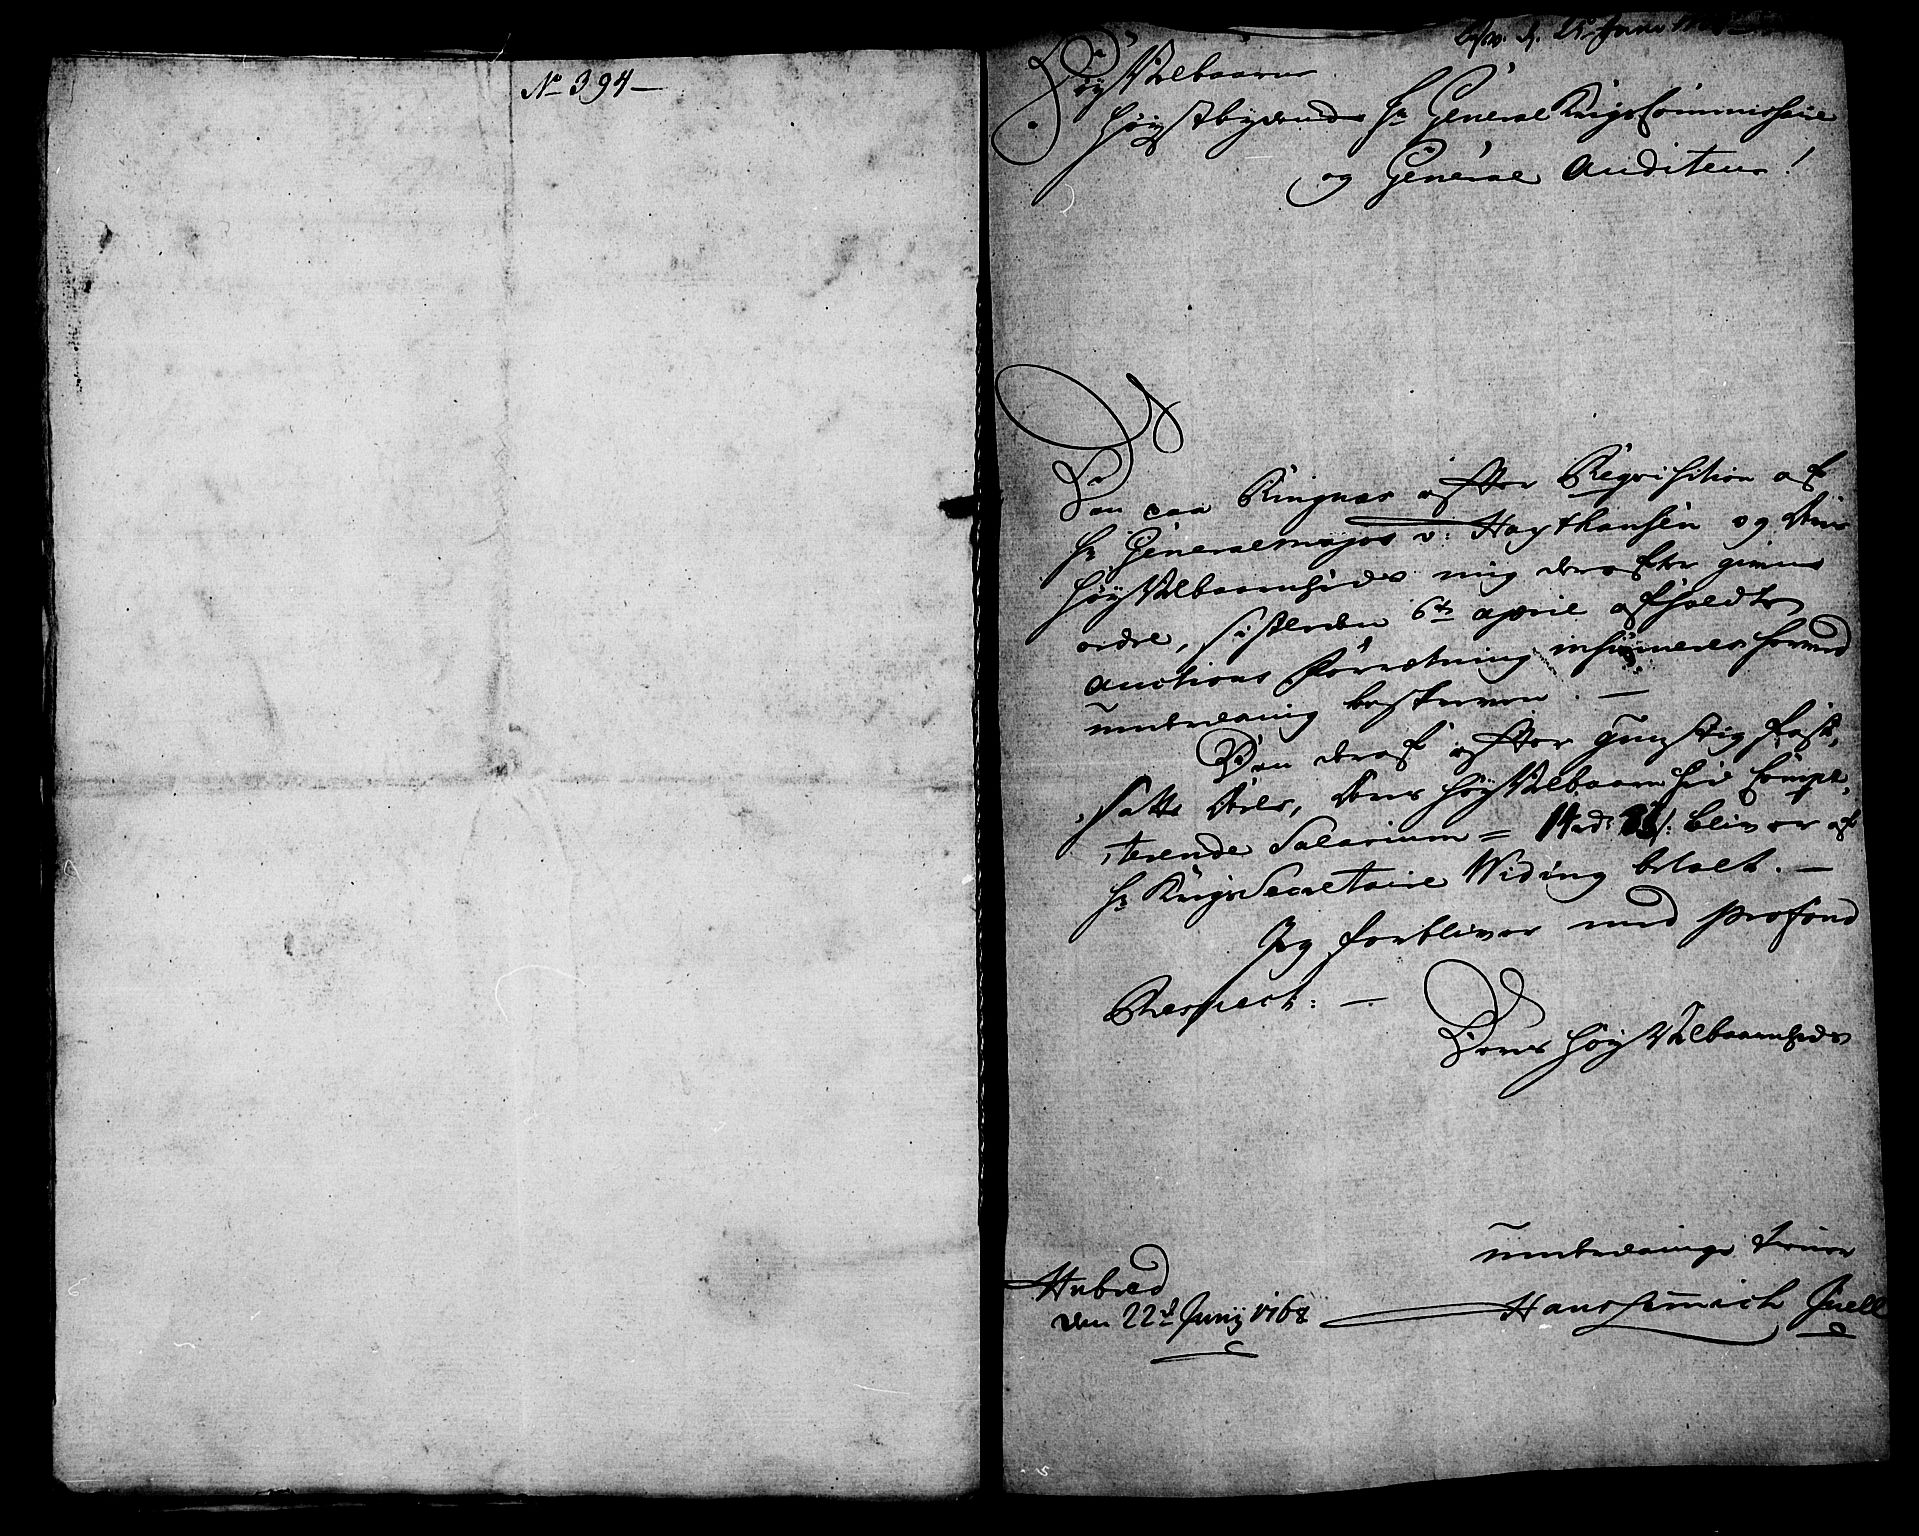 No 394 —
Høy Velbaarne
Høystbydende Hr General Krigs Commissaire
og General Auditeur!
Den paa Ringnæs efter Reqvisition af
Hr Generalmajor v: Haxthausen og Deres
Høy Velbaarenheds mig derefter givne
ordre, sistleeden 6te April afholdte
Auctions Forretning insinueres herved
underdanig beskreven. —
Den deraf efter gunstig fast,
satte Deel, Deres Høy Velbaarenhed Compe,
terende Salarium = rd: s: bliver af
Hr Krigs Secretaire Widing betalt. —
Jeg forbliver med profond
Respect: —
Deres Høy Velbaarenheds
underdanige tiener
Hans Henrich Juell
Aabred
den 22d Junij 1768